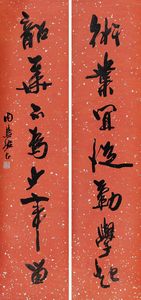 術業宜從勤學起
韶華不為少年留
周慧珺